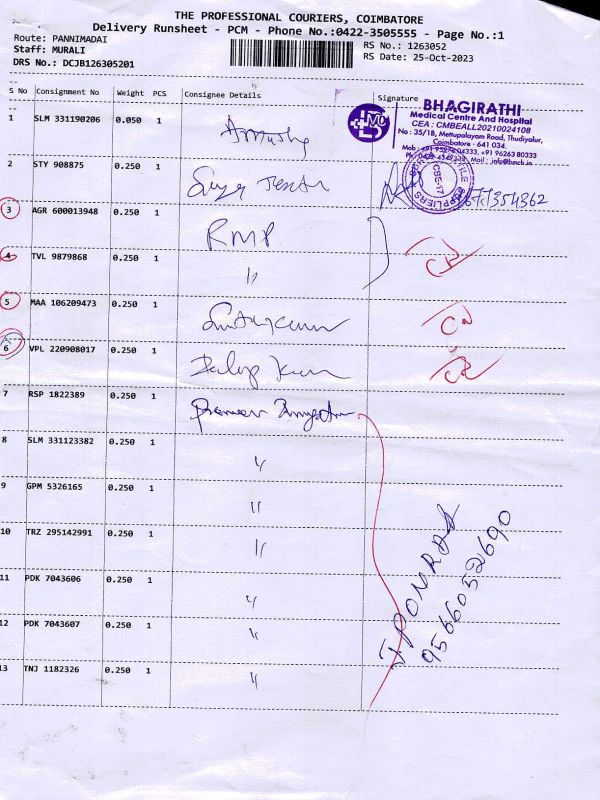 THE PROFESSIONAL COURIERS, COIMBATORE
Delivery Runsheet - PCM - Phone No.:0422-3505555 - Page No.:1
Route: PANNIMADAI
RS No.: 1263052
Staff: MURALI
RS Date: 25-Oct-2023
DRS No.: DCJB126305201
S No Consignment No Weight PCS Consignee Details Signature
BHAGIRATHI
Medical Centre And Hospital
CEA : CMBEALL20210024108
No : 35/18, Mettupalayam Road, Thudiyalur,
Coimbatore - 641 034.
1 SLM 331190206 0.050 1
2 STY 908875 0.250 1
CBE-17
3 AGR 600013948 0.250 1 RMP
4 TVL 9879868 0.250 1 "
5 MAA 106209473 0.250 1
6 VPL 220908017 0.250 1
7 RSP 1822389 0.250 1
8 SLM 331123382 0.250 1 "
9 GPM 5326165 0.250 1 "
10 TRZ 295142991 0.250 1 "
11 PDK 7043606 0.250 1 "
12 PDK 7043607 0.250 1 "
13 TNJ 1182326 0.250 1 "
9566052690